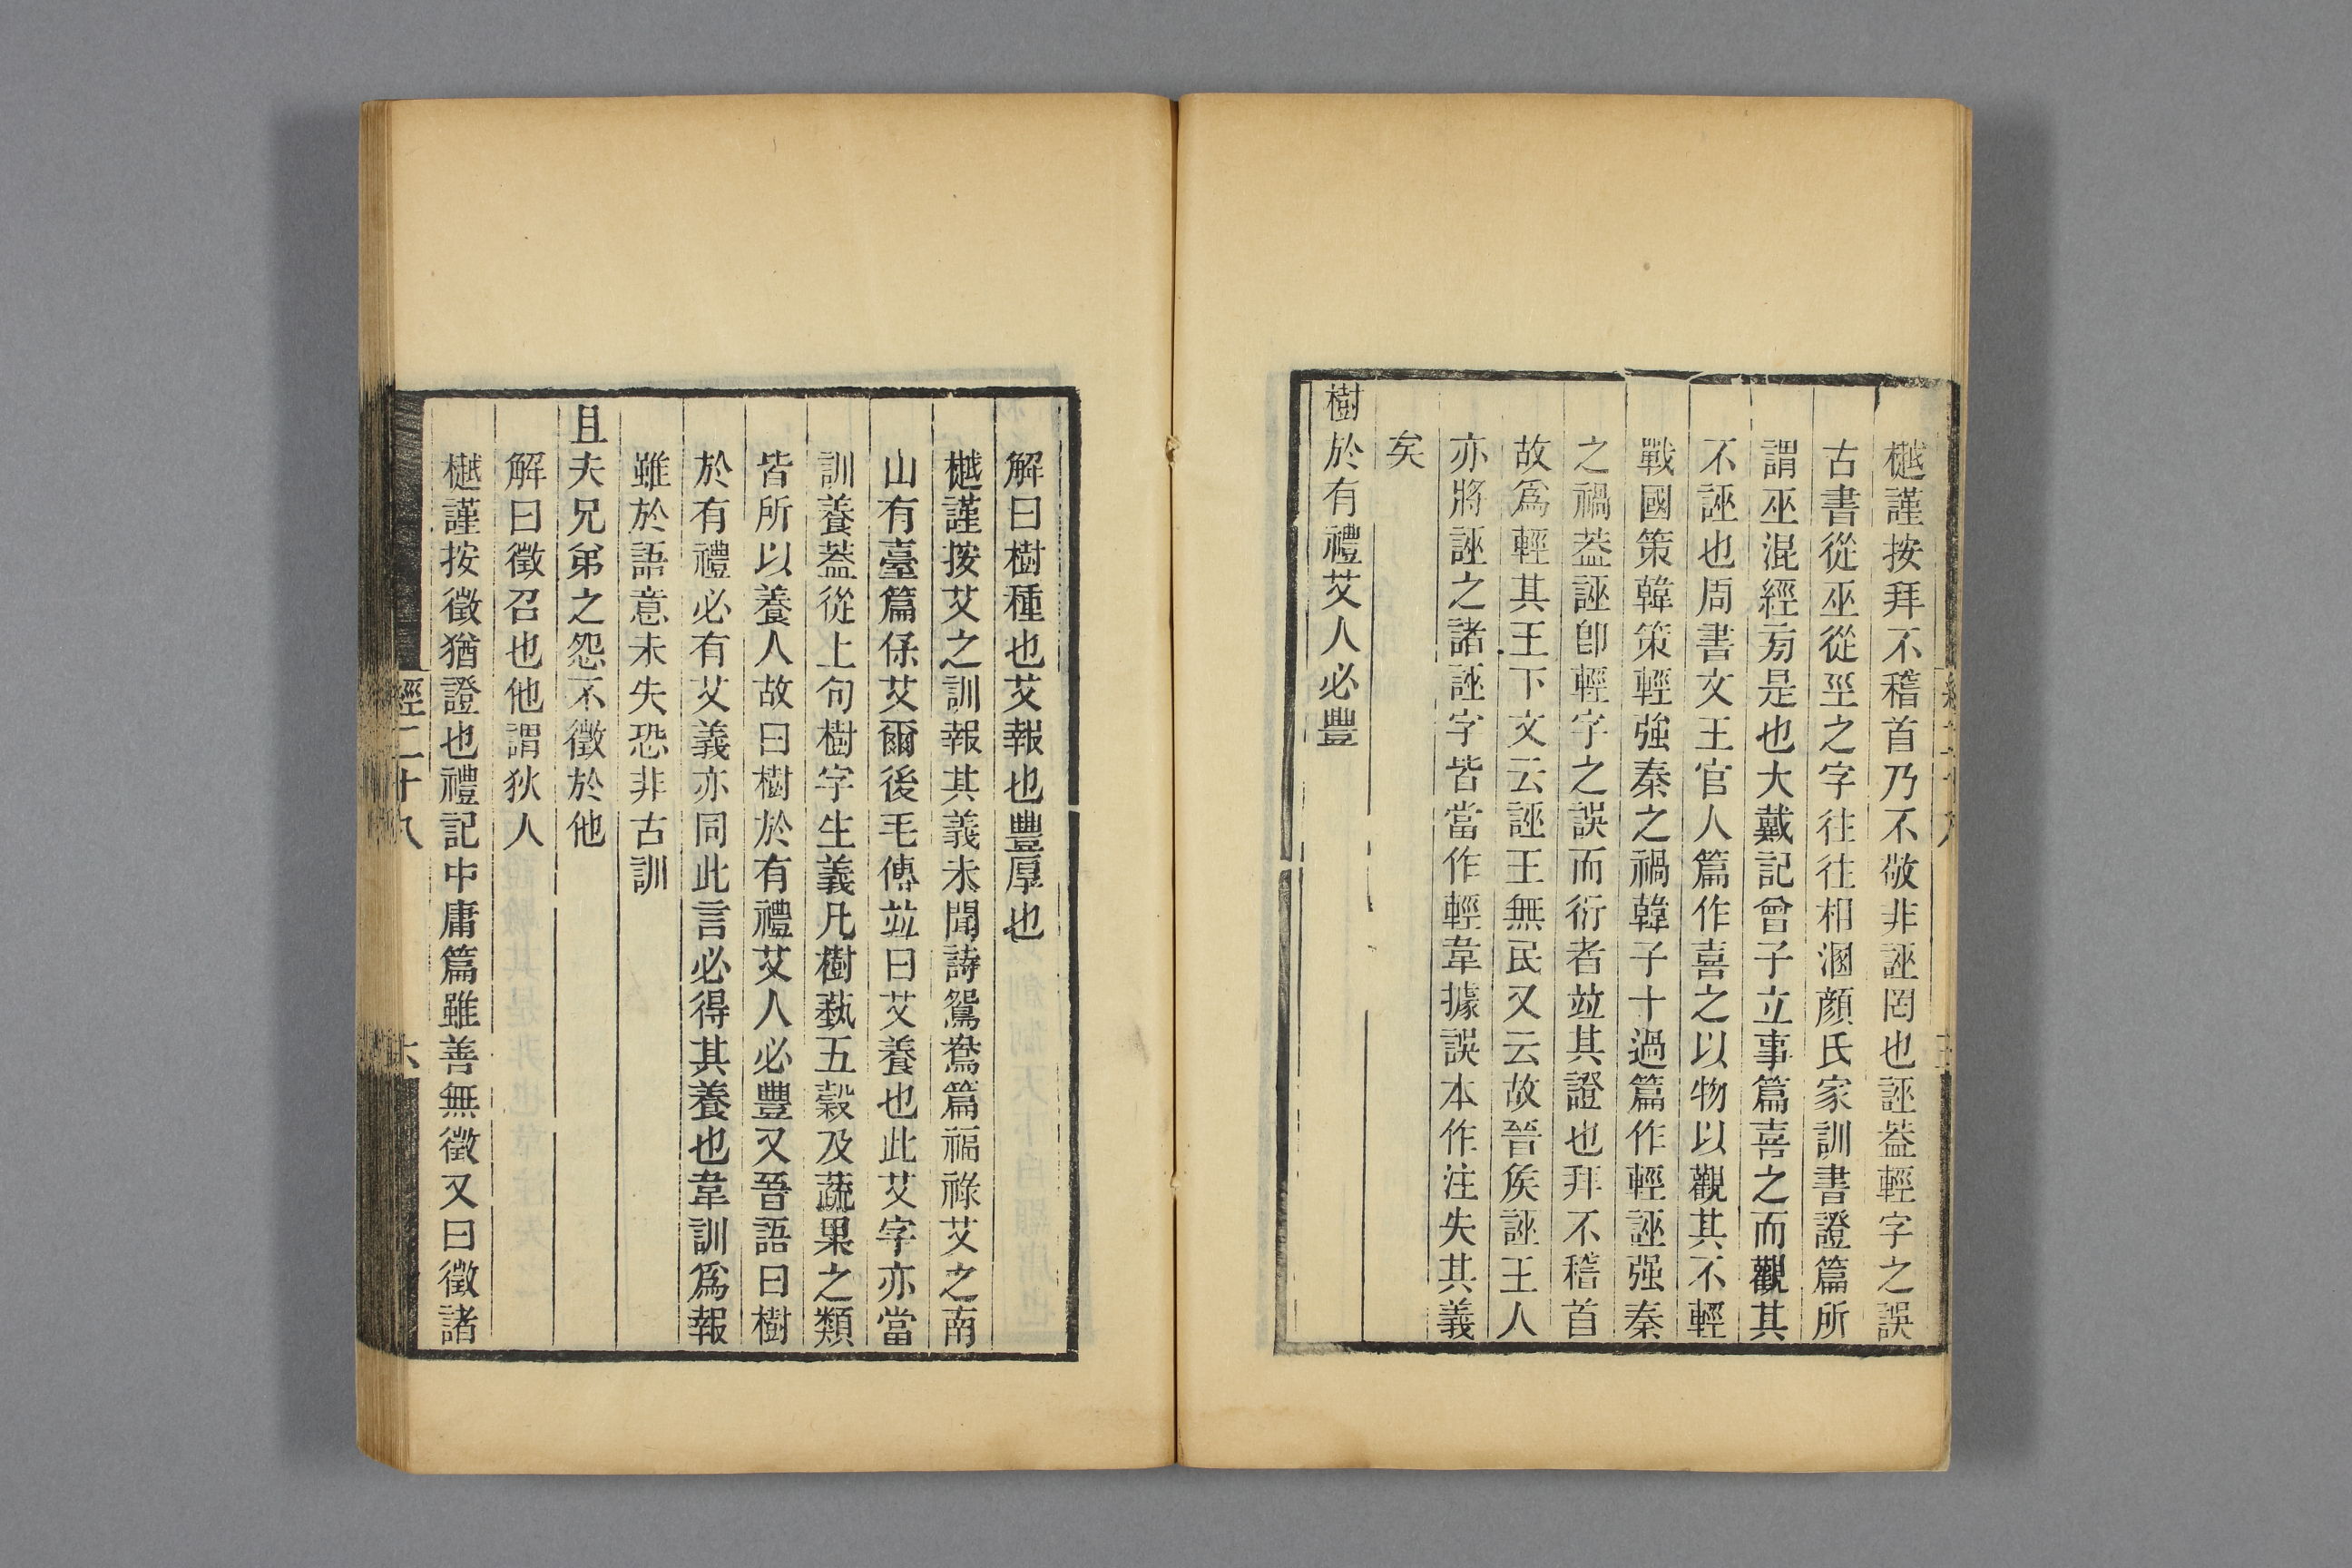 樾謹按拜不稽首乃不敬非誣罔也誣葢輕字之誤
古書從巫從巠之字往往相溷顏氏家訓書證篇所
謂巫混經旁是也大戴記曾子立事篇喜之而觀其
不誣也周書文王官人篇作喜之以物以觀其不輕
戰國策韓策輕強秦之禍韓子十過篇作輕誣强秦
之禍葢誣卽輕字之誤而衍者竝其證也拜不稽首
故爲輕其王下文云誣王無民又云故晉矦誣王人
亦將誣之諸誣字皆當作輕韋據誤本作注失其義
矣
樹於有禮艾人必豐
解曰樹種也艾報也豐厚也
樾謹按艾之訓報其義未聞詩鴛鴦篇福祿艾之南
山有臺篇保艾爾後毛傳竝曰艾養也此艾字亦當
訓養葢從上句樹字生義凡樹蓺五穀及蔬果之類
皆所以養人故曰樹於有禮艾人必豐又晉語曰樹
於有禮必有艾義亦同此言必得其養也韋訓爲報
雖於語意未失恐非古訓
且夫兄弟之怨不徵於他
解曰徵召也他謂狄人
樾謹按徵猶證也禮記中庸篇雖善無徵又曰徵諸
經二十八
六